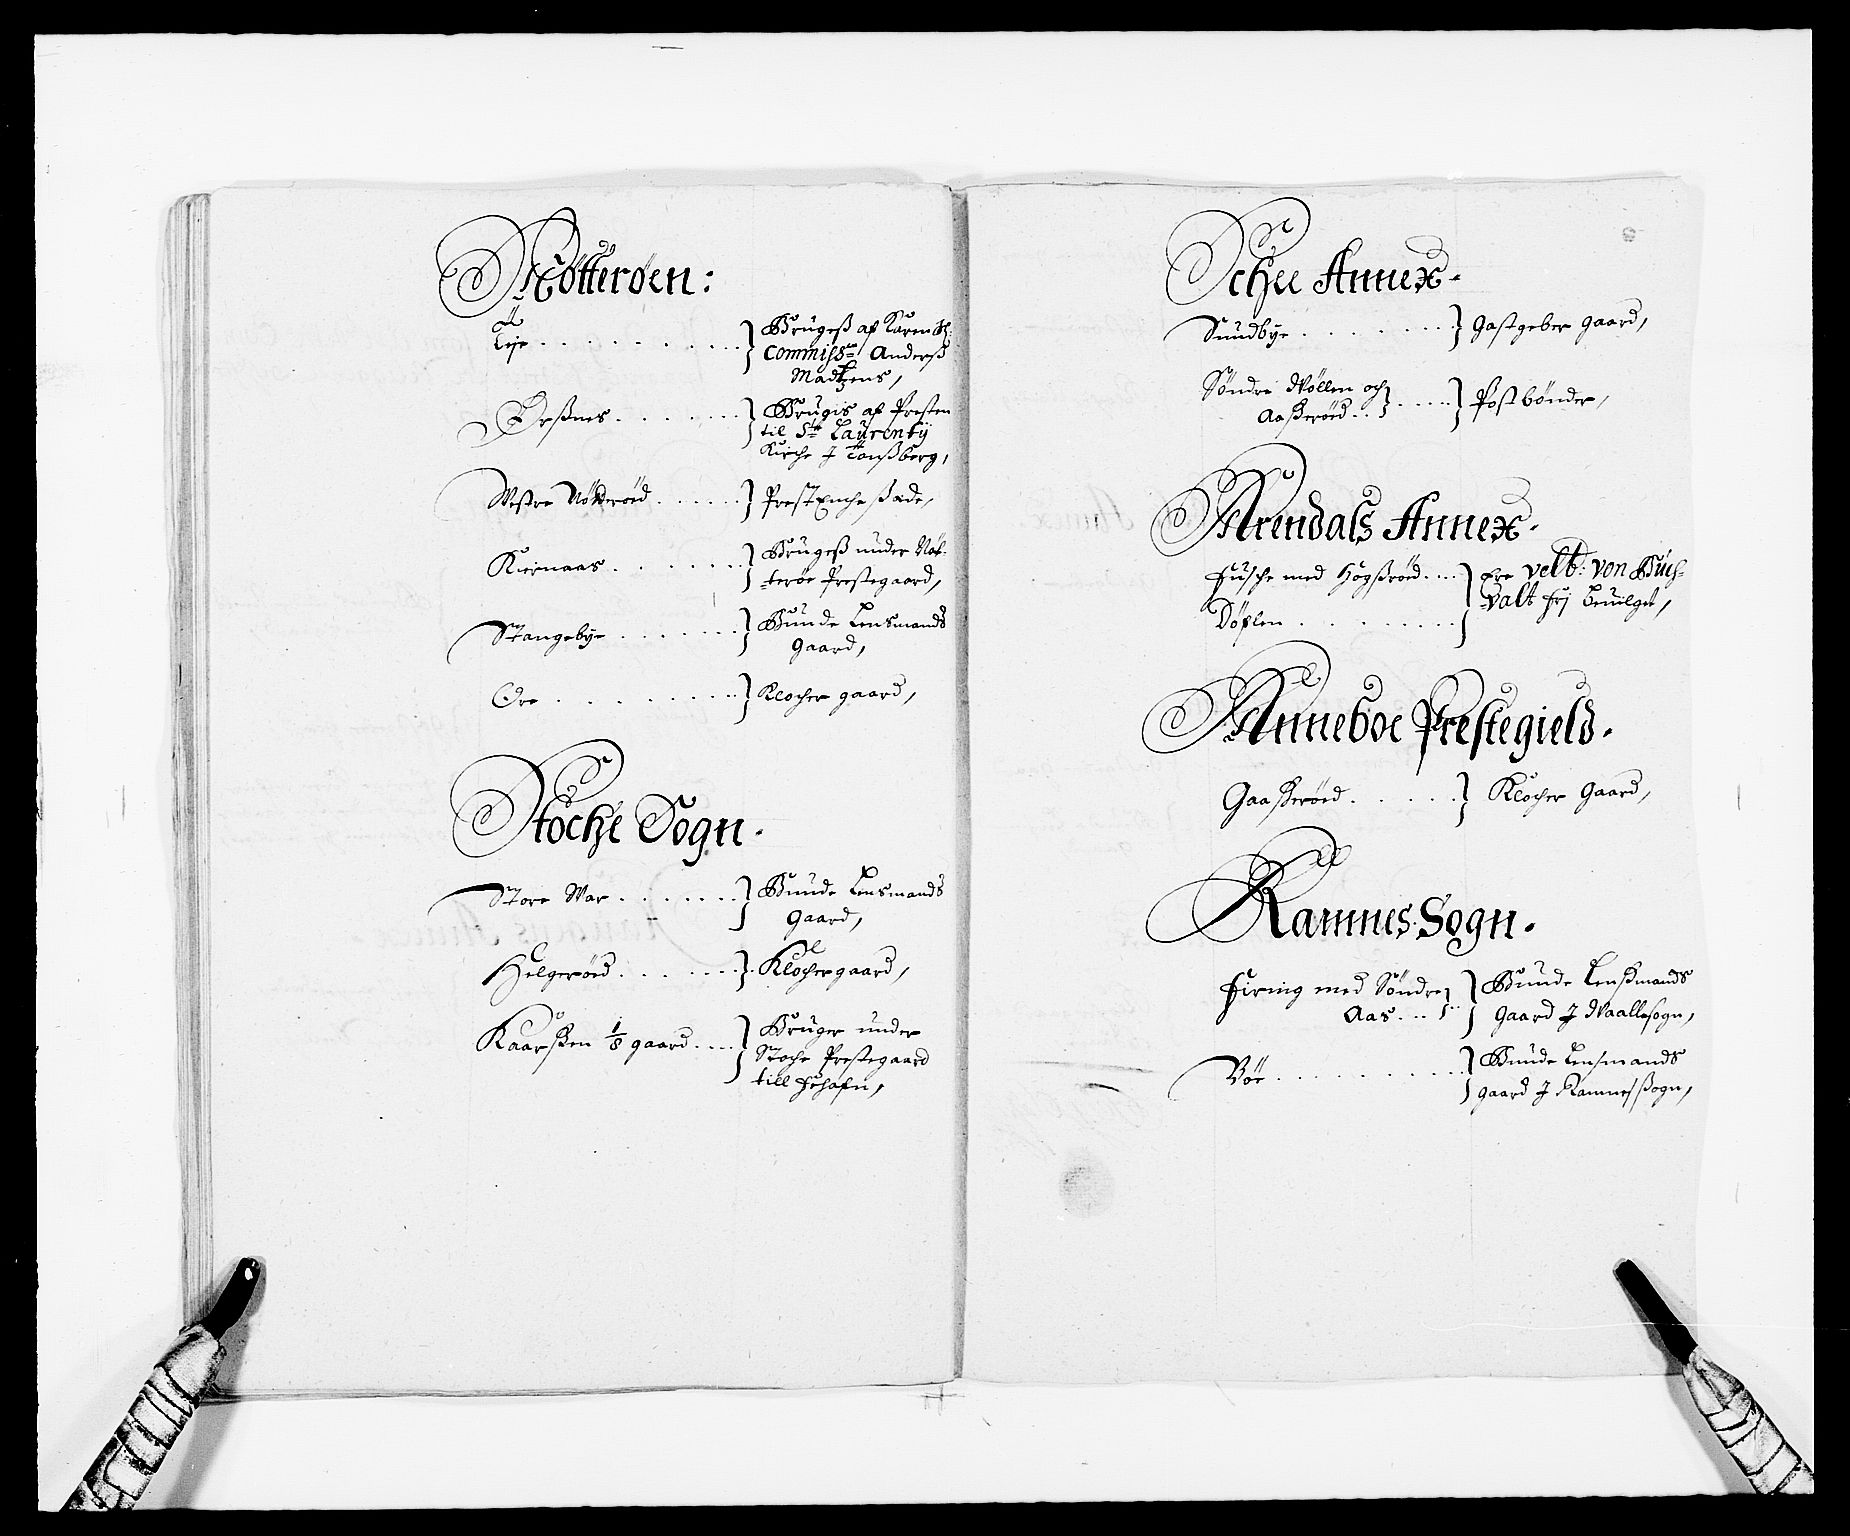 Nøtterøen:
Lije . . . . . . . . . . } Brugeß af Karen Sl:
Commissr: Anderß
Madtzens,
Ørßnes . . . . . . . } Brugis af Presten
til Ste Laurentij
Kirche J Tonßberg,
Westre Nøtterøed . . . . . . } Prest Enche Sæde,
Kiernaas . . . . . . . } Brugeß under Nøt-
terøe Prestegaard,
Stangebye . . . . . . . } Bunde Lensmands
Gaard,
Ore . . . . . . . . . } Klocher gaard,
Stoche Sogn.
Store War . . . . . . . } Bunde Lensmands
Gaard,
Helgerøed . . . . . . . } Klocher gaard,
Kaarßen 1/8 gaard . . . . } Bruger under
Stoche Prestegaard
till
Schee Annex.
Sundbye . . . . . . . . } Gastgeber gaard,
Søndre Møllen och
Aaßerøed . . } . . . . . } Postbønder,
Arendals Annex.
Fusche med Høgßrøed . . . . } Ere Velb: von Buch-
Døflen . . . . . . . . . } valt frj beuilget,
Anneboe Prestegield.
Gaaßerøed . . . . . . } Klocher Gaard,
Ramnes Sogn.
Firing med Søndre } Bunde Lenßmands
Aas . . . } . . } Gaard J Waallesogn,
Bøe . . . . . . . . . . } Bunde Lensmands
gaard J Ramnesßogn,